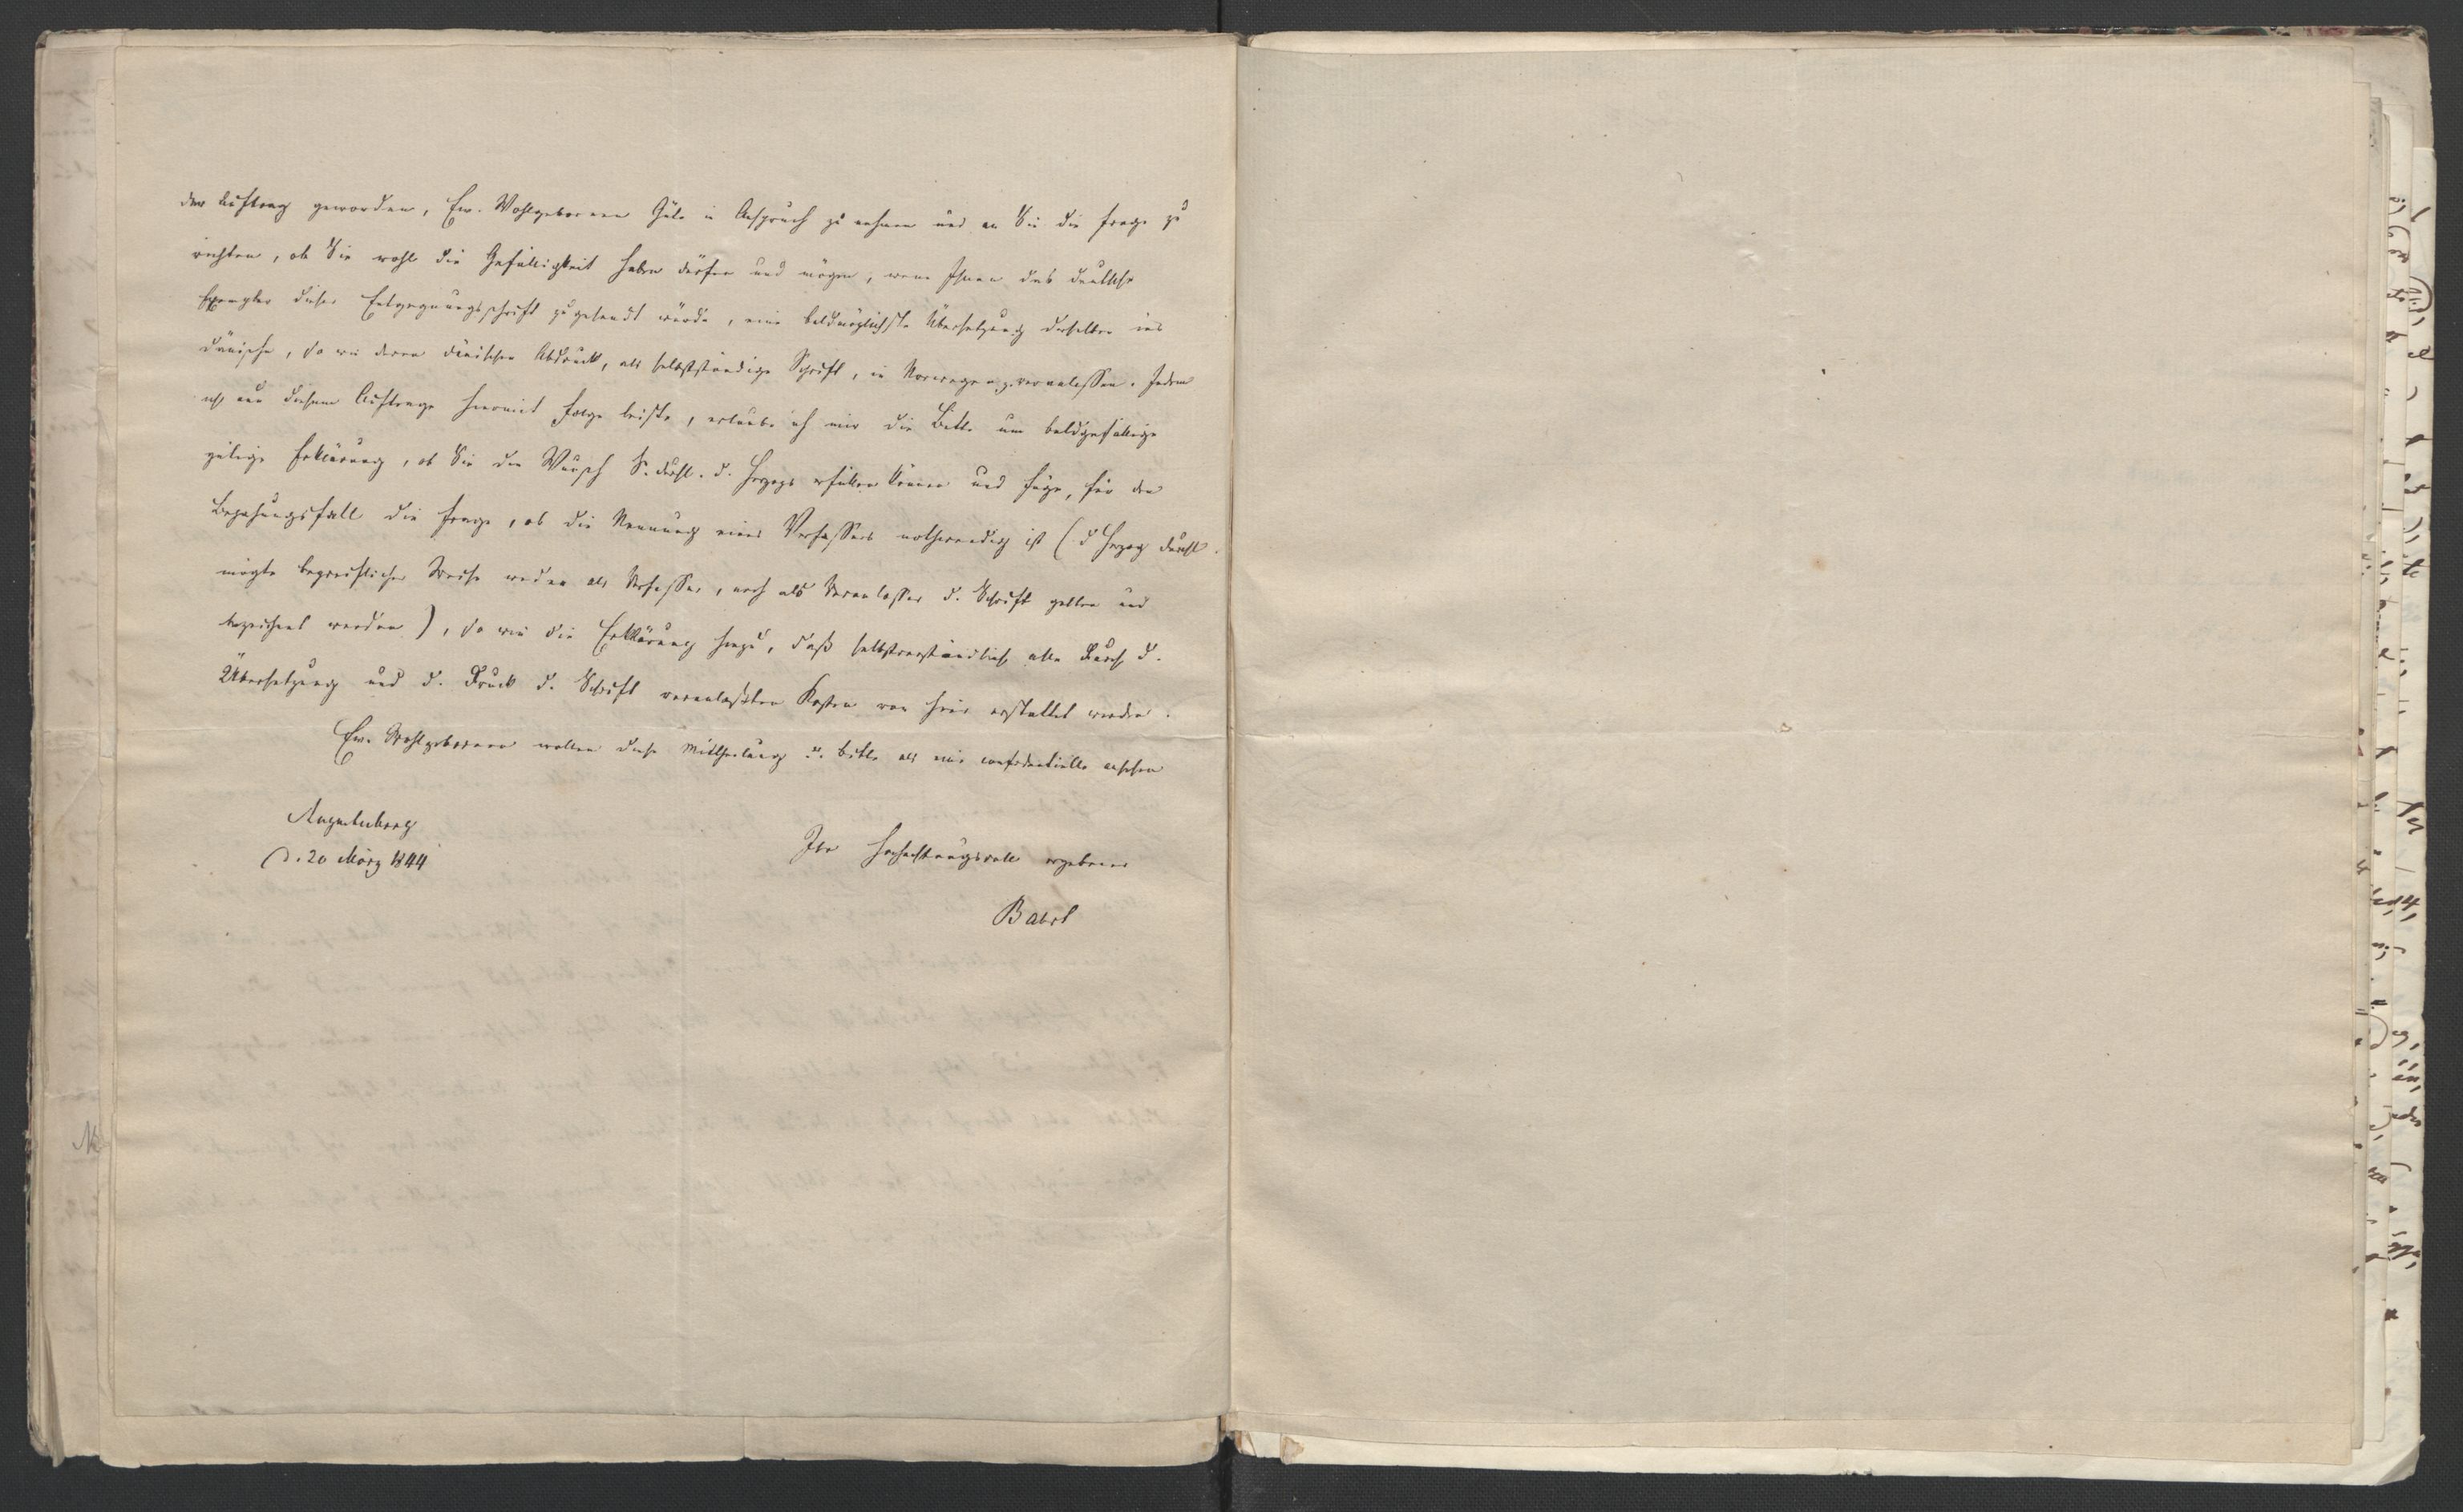 der Auftrag geworden, Ew. Wohlgeboren Güte in Anspruch zu nehmen und an Sie die Frage zu
richten, ob Sie wohl die Gefälligkeit haben dürften und mögen, wenn Ihnen das deutsche
Exemplar dieser Entgegnungsschrift zugesandt würde, eine baldmöglichste Übersetzung derselben ins
dänische, so wie deren dänischen Abdruck, als selbstständige Schrift, in Norwegen z. veranlassen. Indem
ich nun diesem Auftrage hiermit Folge leiste, erlaube ich mir die Bitte um baldgefällige
gütige Erklärung, ob Sie den Wunsch S. Durchl. d. Herzogs erfüllen können und füge, für den
Bejahungsfall die Frage, ob die Nennung eines Verfassers nothwendig ist (d Herzog Durchl.
mögte begreiflicher Weise weder als Verfasser, noch als Veranlasser d. Schrift gelten und
bezeichnet werden), so wie die Erklärung hinzu, daß selbstverständlich alle durch d.
Übersetzung und d. Druck d. Schrift veranlaßten Kosten von hier erstattet werden.
Ew. Wohlgeboren wollen diese Mittheilung u. Bitte als eine confidentielle ansehen
Augustenburg
d. 20 März 1844
Ihr hochachtungsvoll ergebener